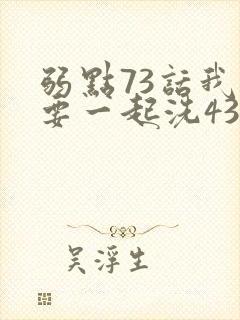 弱點73話我
要一起洗43
吴浮生